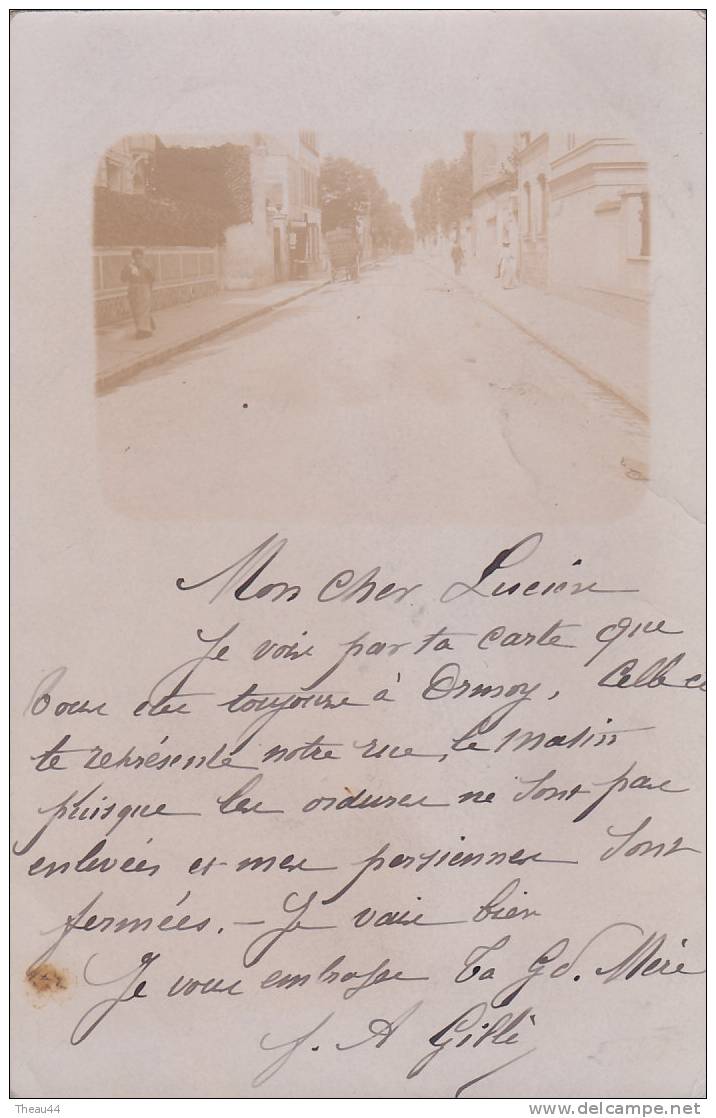 Mon cher Lucien
Je vois par ta carte que
vous êtes toujours à Ormoy, Celle ci
te représente notre rue, le matin
puisque les ordures ne sont pas
enlevées et mes persiennes sont
fermées. – Je vais bien
Je vous embrasse Ta Gd. Mère
J. A Gillé
Theau44
delcampe.net